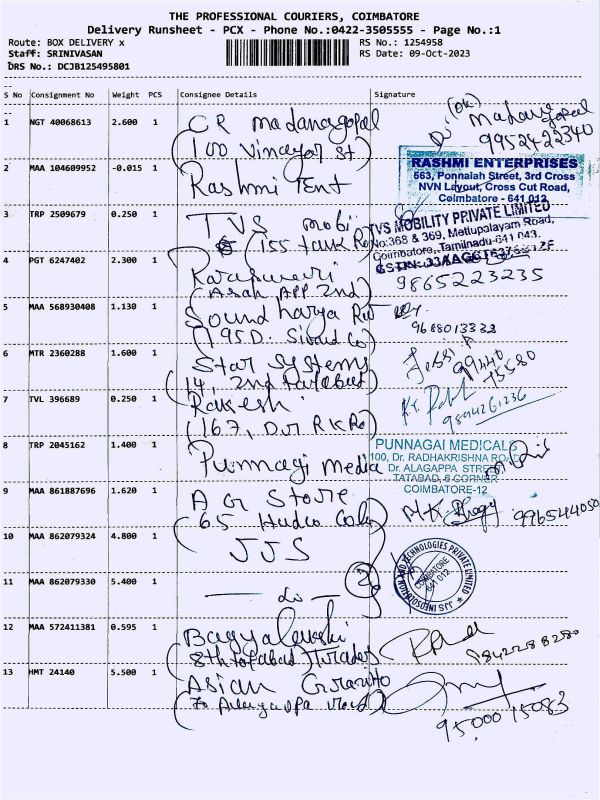 THE PROFESSIONAL COURIERS, COIMBATORE
Delivery Runsheet - PCX - Phone No.:0422-3505555 - Page No.:1
Route: BOX DELIVERY x
RS No.: 1254958
Staff: SRINIVASAN
RS Date: 09-Oct-2023
DRS No.: DCJB125495801
S No Consignment No Weight PCS Consignee Details Signature
1 NGT 40068613 2.600 1 CR madanagopal
(100 Vinayar St)
(OK)
9952422340
2 MAA 104609952 -0.015 1 Rashmi Tent
RASHMI ENTERPRISES
663, Ponnaiah Street, 3rd Cross
NVN Layout, Cross Cut Road,
Coimbatore - 641 012
3 TRP 2509679 0.250 1 TVS mobi
(155 tank Ro)
TVS MOBILITY PRIVATE LIMITED
No:368 & 369, Mettupalayam Road,
Coimbatore, Tamilnadu-641 043.
4 PGT 6247402 2.300 1
9865223235
5 MAA 568930408 1.130 1 Soundharya
(195 D.
9688013333
6 MTR 2360288 1.600 1 Star Systems
(14, 2nd
99440
75580
7 TVL 396689 0.250 1 Rakesh
(167, D.r R K Ro)
9894261236
8 TRP 2045162 1.400 1 Punnagi media
PUNNAGAI MEDICALS
100, Dr. RADHAKRISHNA ROAD
Dr. ALAGAPPA STREET
TATABAD, 6 CORNER
COIMBATORE-12
9 MAA 861887696 1.620 1 A G Store
(65 Hudco
9965444050
10 MAA 862079324 4.800 1 JJS
JJS INFOSOLUTION AND TECHNOLOGIES PRIVATE LIMITED
COIMBATORE
641 012
11 MAA 862079330 5.400 1 — Do — (2)
12 MAA 572411381 0.595 1
(8th
9842288280
13 HMT 24140 5.500 1 Asian Granito
(70
95000 15083